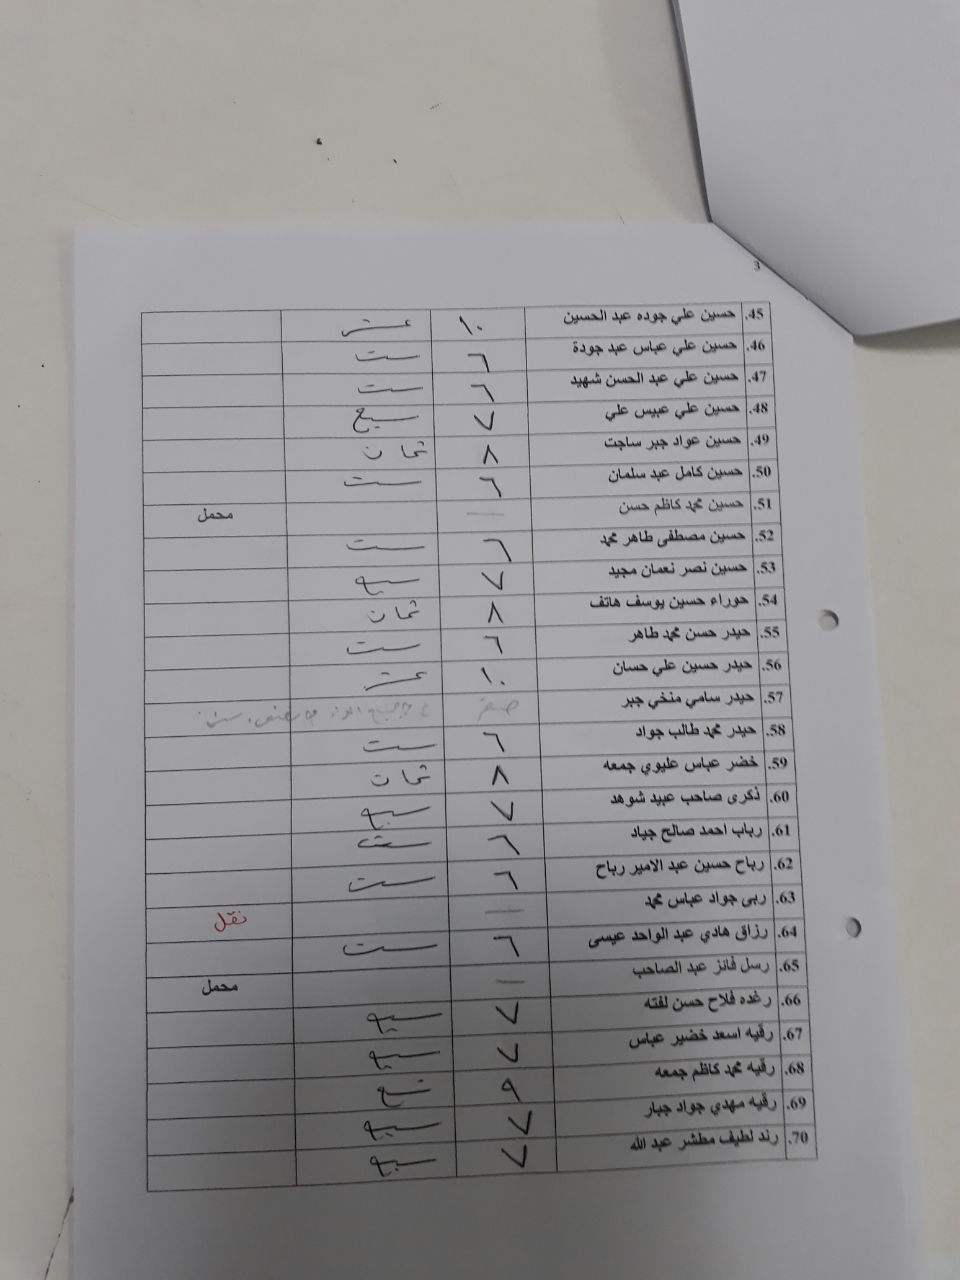 3
45. حسين علي جوده عبد الحسين ١٠ عشر
46. حسين علي عباس عبد جودة ٦ ست
47. حسين علي عبد الحسن شهيد ٦ ست
48. حسين علي عبيس علي ٧ سبع
49. حسين عواد جبر ساجت ٨ ثمان
50. حسين كامل عبد سلمان ٦ ست
51. حسين محمد كاظم حسن — محمل
52. حسين مصطفى طاهر محمد ٦ ست
53. حسين نصر نعمان مجيد ٧ سبع
54. حوراء حسين يوسف هاتف ٨ ثمان
55. حيدر حسن محمد طاهر ٦ ست
56. حيدر حسين علي حسان ١٠ عشر
57. حيدر سامي منخي جبر صفر
58. حيدر محمد طالب جواد ٦ ست
59. خضر عباس عليوي جمعه ٨ ثمان
60. ذكرى صاحب عبيد شوهد ٧ سبع
61. رباب احمد صالح جياد ٦ ست
62. رباح حسين عبد الامير رباح ٦ ست
63. ربى جواد عباس محمد — نقل
64. رزاق هادي عبد الواحد عيسى ٦ ست
65. رسل فائز عبد الصاحب — محمل
66. رغده فلاح حسن لفته ٧ سبع
67. رقيه اسعد خضير عباس ٧ سبع
68. رقيه محمد كاظم جمعه ٩ تسع
69. رقيه مهدي جواد جبار ٧ سبع
70. رند لطيف مطشر عبد الله ٧ سبع